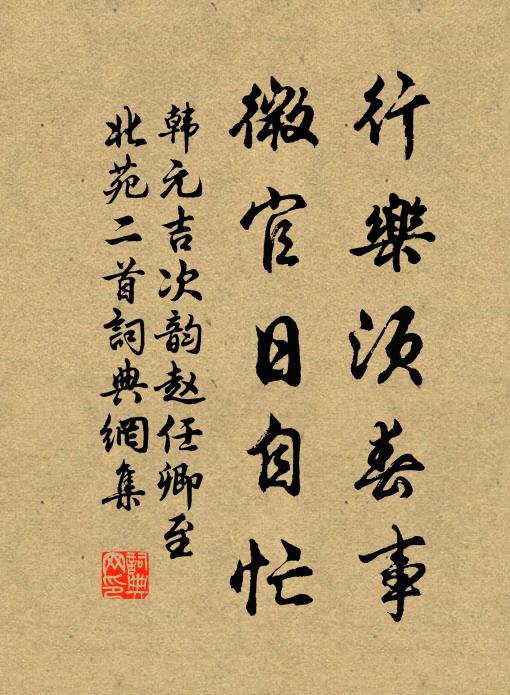 行樂須春事
微官日自忙
韩元吉次韵赵任卿至
北苑二首詞典網集
詞典
网印